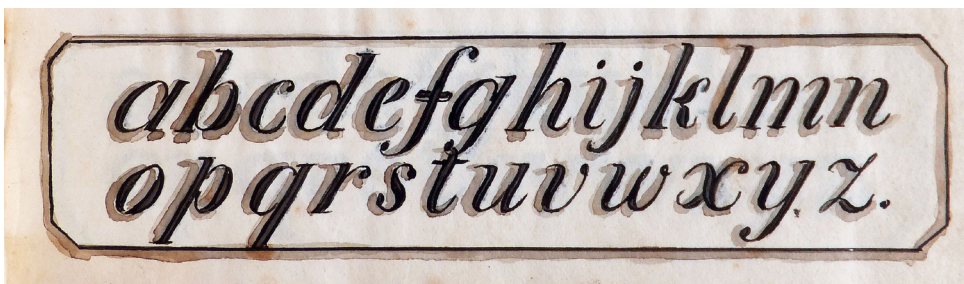 abcdefghijklmn
opqrstuvwxyz.